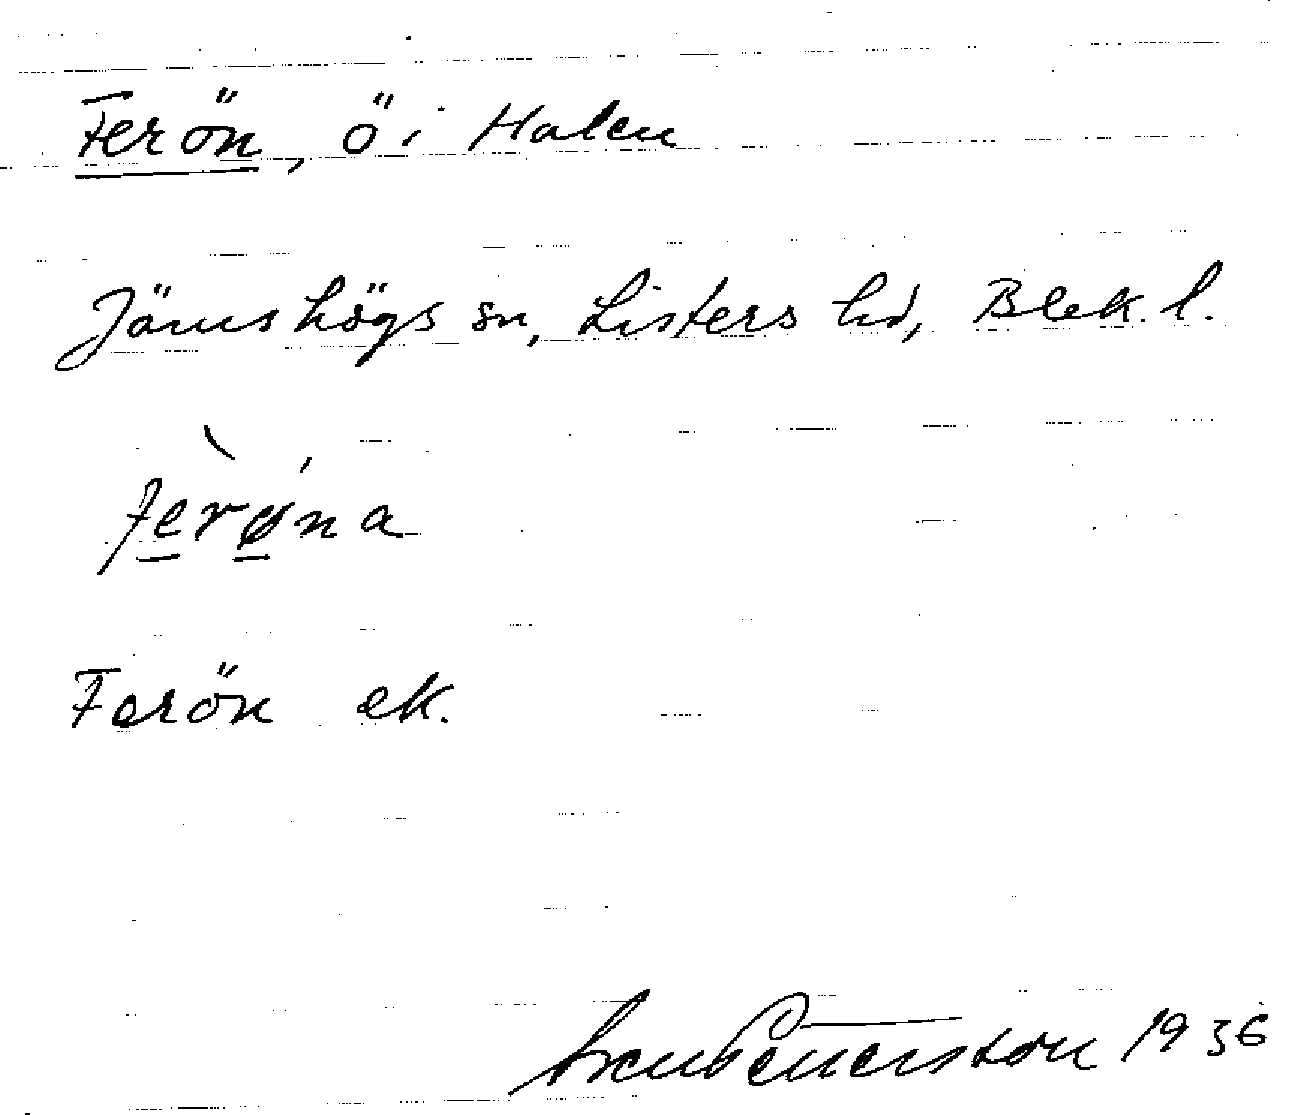 Ferön, ö i Halen
Jämshögs sn, Listers hd, Blek. l.
ferøna
Ferön ek.
1936